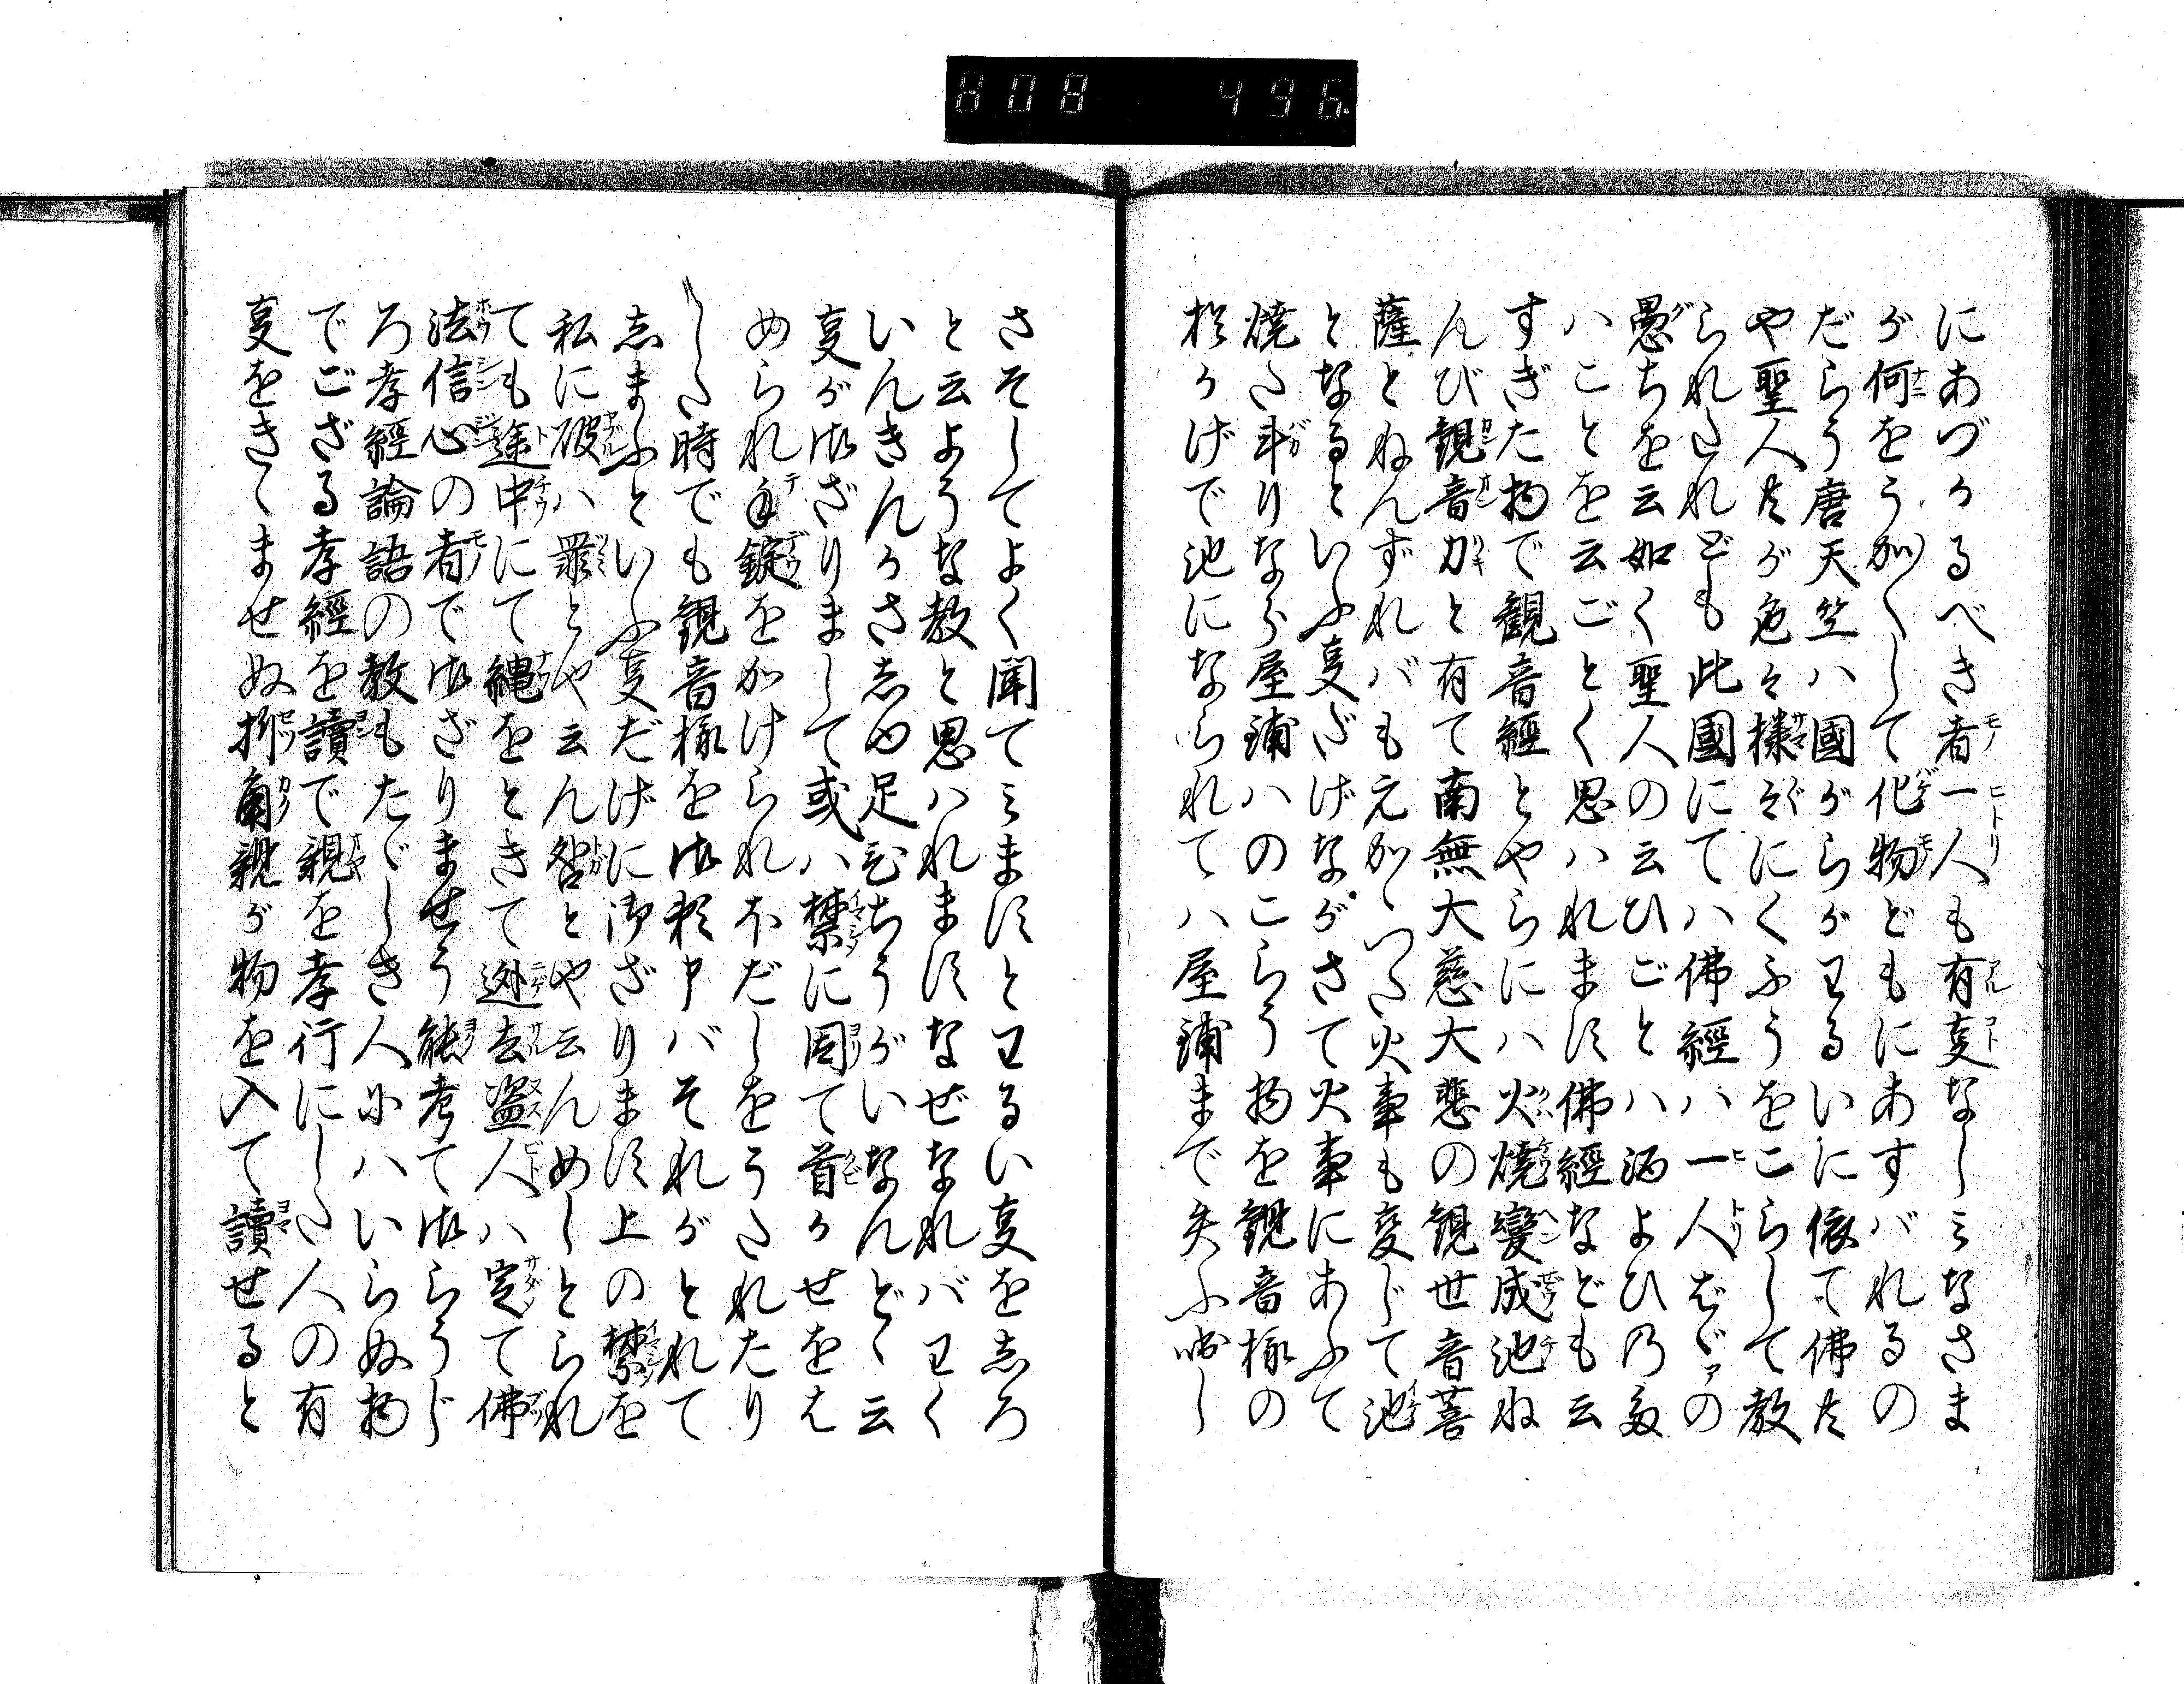 808 496.
にあづかるべき者一人も有叓なしミなさま
が何をうかくして化物どもにあすバれるの
だらう唐天竺ハ國がらがわるいに依て佛だ
や聖人だが色々様々にくふうをこらして教
られたれども此國にてハ佛經ハ一人むだの
愚ちを云如く聖人の云ひごとハ酒よひの
ハことを云ごとく思ハれます佛經なども云
すぎた物で観音經とやらにハ火燒變成池ね
んび観音力と有て南無大慈大悲の観世音菩
薩とねんずれバも元かゝつた火事も変じて池
となるといふ叓だげながさて火事にあふて
焼た斗りなら屋鋪ハのこらう物を観音様の
おかげで池になられてハ屋鋪まで失ふ
さそしてよく聞てミますとわるい叓をしろ
と云ような教と思ハれますなぜなれバわく
いんきんかさしゆ足もちうがいなんどゝ云
叓が御ざりまして或ハ禁に周て首かせをは
め られ手錠をかけられ不だしをうたれたり
した時でも観音様を御頼申バそれがとれて
しまふといふ叓だげに御ざります上の禁を
私に破ハ罪とや云ん咎とや云んめしとられ
ても途中にて縄をときて迯去盗人ハ定て佛
法信心の者で御ざりませう能考て御らうじ
ろ孝經論語の教もたゞしき人にハいらぬ物
でござる孝經を讀で親を孝行にした人の有
叓をきゝませぬ折角親が物を入て讀せると